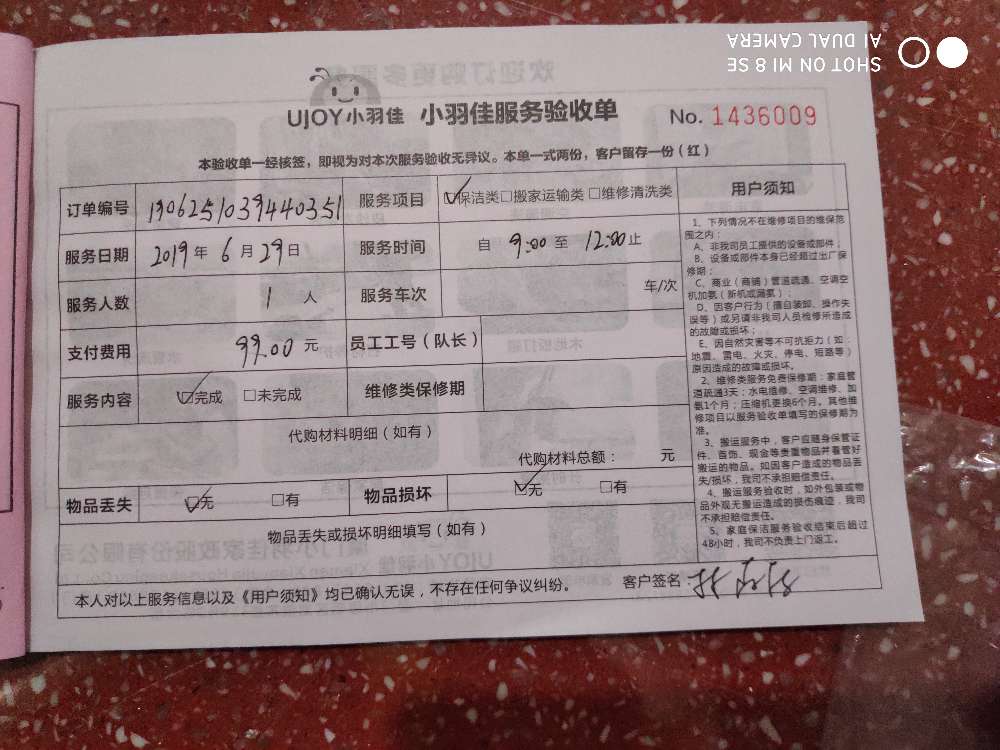 SHOT ON MI 8 SE
AI DUAL CAMERA
欢迎订购更多
UJOY小羽佳 小羽佳服务验收单 No. 1436009
本验收单一经核签，即视为对本次服务验收无异议。本单一式两份，客户留存一份（红）
订单编号 1906251039440351 服务项目 ☑保洁类□搬家运输类□维修清洗类
服务日期 2019年6月29日 服务时间 自 9:00 至 12:00止
服务人数 1 人 服务车次 车/次
支付费用 99.00 元 员工工号（队长）
服务内容 ☑完成 □未完成 维修类保修期
代购材料明细（如有）
代购材料总额： 元
物品丢失 ☑无 □有 物品损坏 ☑无 □有
物品丢失或损坏明细填写（如有）
本人对以上服务信息以及《用户须知》均已确认无误，不存在任何争议纠纷。 客户签名:
用户须知
1、下列情况不在维修项目的维保范
围之内：
A、非我司员工提供的设备或部件；
B、设备或部件本身已经超过出厂保
修期；
C、商业（商铺）管道疏通、空调空
机加氨（新机或漏氨）；
D、因客户行为（擅自装卸、操作失
误等）或另请非我司人员检修所造成
的故障或损坏；
E、因自然灾害等不可抗拒力（如：
地震、雷电、火灾、停电、短路等）
原因造成的故障或损坏。
2、维修类服务免费保修期：家庭管
道疏通3天；水电维修、空调维修、加
氨1个月；压缩机更换6个月。其他维
修项目以服务验收单填写的保修期为
准。
3、搬运服务中，客户应随身保管证
件、首饰、现金等贵重物品并看管好
搬运的物品。如因客户造成的物品丢
失/损坏，我司不承担赔偿责任。
4、搬运服务验收时，如外包装或物
品外观无搬运造成的损伤痕迹，我司
不承担赔偿责任。
5、家庭保洁服务验收结束后超过
48小时，我司不负责上门返工。